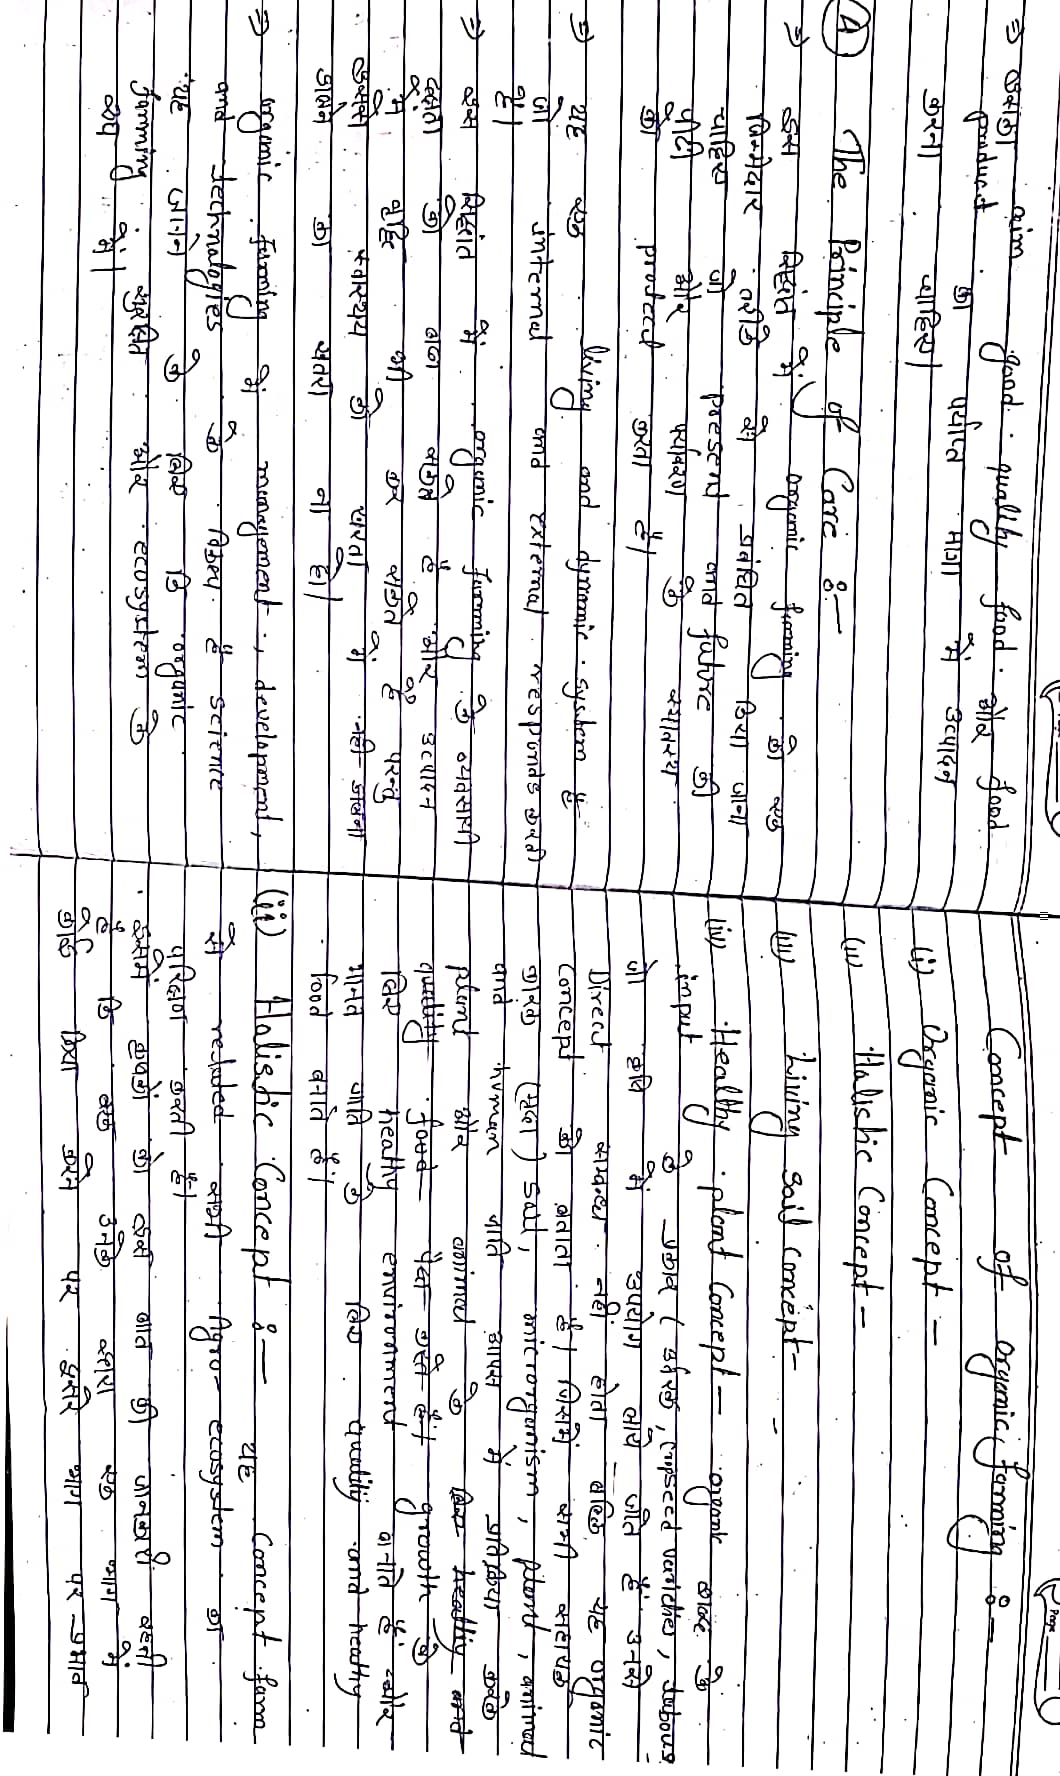 ⇒ इसका aim good quality food और good
product का पर्याप्त मात्रा में उत्पादन
करना चाहिए।
(4) The Principle of Care :-
⇒ इस सिद्धांत में, organic farming को एक
जिम्मेदार तरीके से प्रबंधित किया जाना
चाहिए जो present and future की
पीढ़ी और पर्यावरण के
को protect करता है।
⇒ यह एक living and dynamic system है
जो internal and external responds करती
है।
⇒ इस सिद्धांत में organic farming के व्यवसायी
की बढ़ा सकते हैं और उत्पादन
में वृद्धि भी कर सकते हैं परन्तु
इसमें स्वास्थ्य को खतरा में नहीं डालना
का खतरा ना हो।
⇒ organic farming में management, development,
and technologies के विषय है science
यह जानने के लिए कि organic
farming सुरक्षित और ecosystem के
रूप में।
Page
Concept of organic farming :-
(i) Organic Concept -
(ii) Holistic Concept -
(iii) Living Soil Concept -
(iv) Healthy plant Concept - organic शब्द के
input के प्रकार ( , seed varieties, labour
जो कृषि में उपयोग लाये जाते हैं उनसे
Direct सम्बन्ध नहीं होता बल्कि यह organic
Concept को बताता है। जिसमें सभी सहायक
कारक (मृदा) Soil, microorganism, plant, animal
and human जाति आपस में प्रतिक्रिया करके
plant और animal के लिए healthy and
quality food पैदा करते हैं। growth के
लिए healthy environment बनाते हैं और
मानव जाति के लिए quality and healthy
food बनाते हैं।
(ii) Holistic Concept :- यह Concept farm
से related सभी Agro-ecosystem का
परिक्षण करती है।
इसमें कृषकों को इस बात की जानकारी रहती
है कि वह उनके द्वारा एक भाग में
कोई क्रिया करने पर दूसरे भाग पर प्रभाव